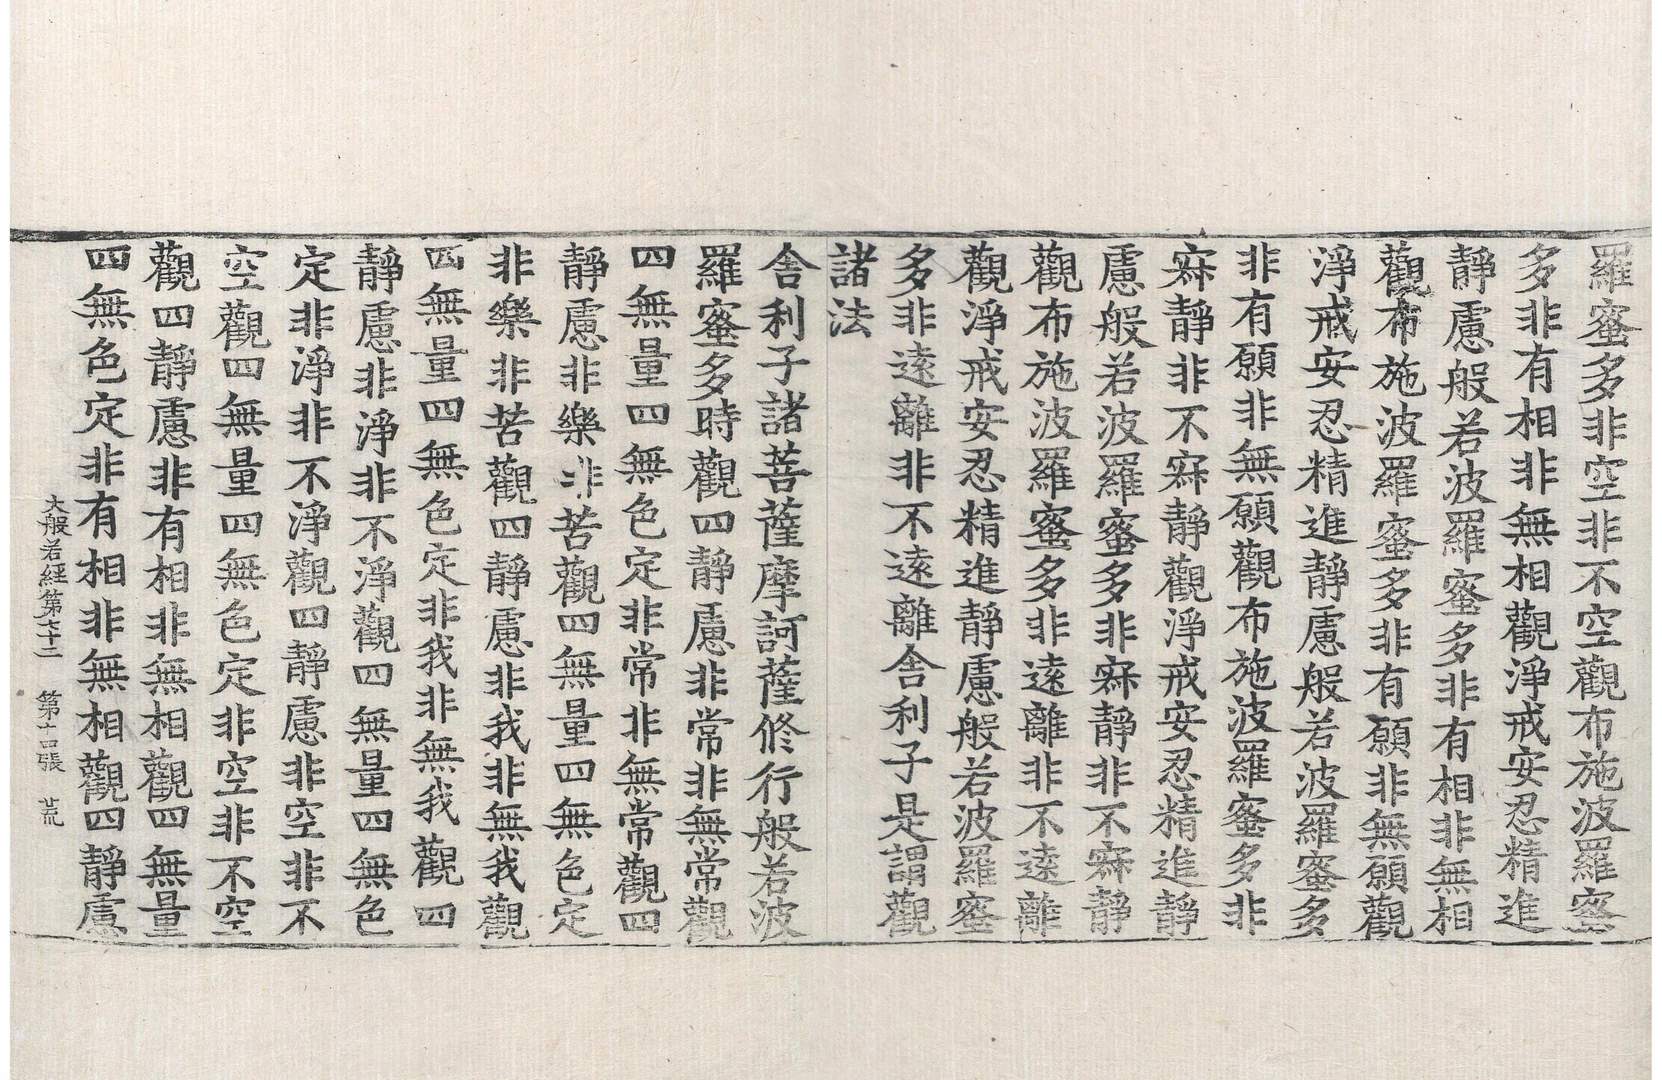 羅蜜多非空非不空觀布施波羅蜜
多非有相非無相觀淨戒安忍精進
靜慮般若波羅蜜多非有相非無相
觀布施波羅蜜多非有願非無願觀
淨戒安忍精進靜慮般若波羅蜜多
非有願非無願觀布施波羅蜜多非
寂靜非不寂靜觀淨戒安忍精進靜
慮般若波羅蜜多非寂靜非不寂靜
觀布施波羅蜜多非遠離非不遠離
觀淨戒安忍精進靜慮般若波羅蜜
多非遠離非不遠離舍利子是謂觀
諸法
舍利子諸菩薩摩訶薩修行般若波
羅蜜多時觀四靜慮非常非無常觀
四無量四無色定非常非無常觀四
靜慮非樂非苦觀四無量四無色定
非樂非苦觀四靜慮非我非無我觀
四無量四無色定非我非無我觀四
靜慮非淨非不淨觀四無量四無色
定非淨非不淨觀四靜慮非空非不
空觀四無量四無色定非空非不空
觀四靜慮非有相非無相觀四無量
四無色定非有相非無相觀四靜慮
大般若經第七十三 第十四張 荒